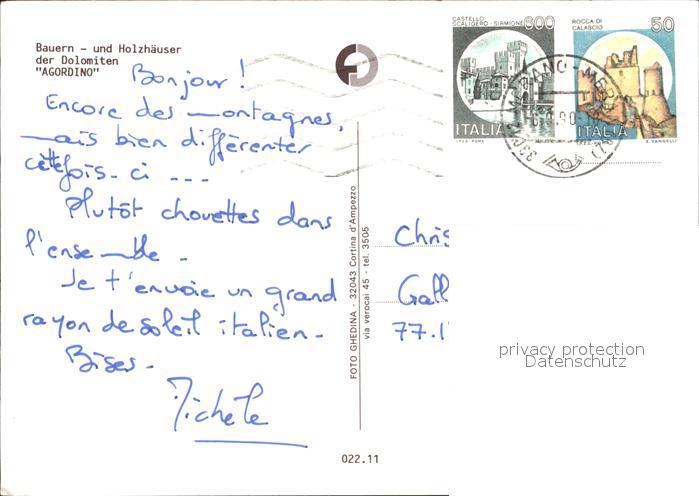 Bauern - und Holzhäuser
der Dolomiten
"AGORDINO"
Bonjour !
Encore des montagnes,
mais bien différenter
cette fois-ci ---
Plutôt chouettes dans
l'ensemble.
Je t'envoie un grand
rayon de soleil italien.
Bises.
Michele
FOTO GHEDINA - 32043 Cortina d'Ampezzo
via verocai 45 - tel. 3505
022.11
CASTELLO
SCALIGERO - SIRMIONE 600
ITALIA
ROCCA DI
CALASCIO 50
ITALIA
Chris
Gall
77.1
privacy protection
Datenschutz